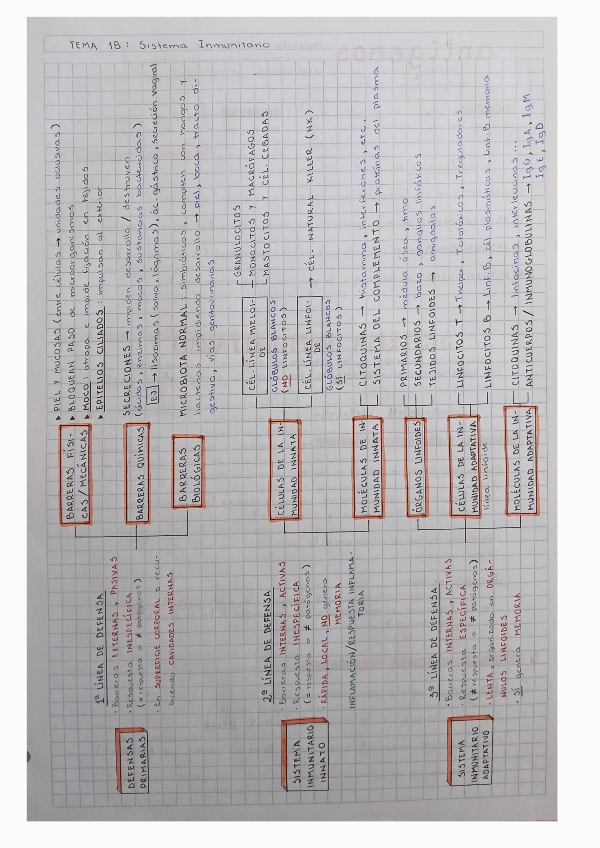 TEMA 18: Sistema Inmunitario
DEFENSAS
PRIMARIAS
1ª LÍNEA DE DEFENSA
· Barreras EXTERNAS y PASIVAS
· Respuesta INESPECÍFICA
(= respuesta a ≠ patógenos)
· En SUPERFICIE CORPORAL o recu-
briendo CAVIDADES INTERNAS
BARRERAS FÍSI-
CAS/MECÁNICAS
▸ PIEL Y MUCOSAS (entre células → uniones oclusivas)
▸ BLOQUEAN PASO de microorganismos
▸ MOCO: atrapa e impide fijación en tejidos
▸ EPITELIOS CILIADOS: impulsan al exterior
BARRERAS QUÍMICAS
SECRECIONES → impiden desarrollo / destruyen
(ácidos, enzimas, mocos, sustancias bactericidas)
EJ → lisozimas (saliva, lágrimas), ác. gástrico, secreción vaginal
BARRERAS
BIOLÓGICAS
MICROBIOTA NORMAL: simbióticos, compiten con hongos y
bacterias impidiendo desarrollo → piel, boca, tracto di-
gestivo, vías genitourinarias
SISTEMA
INMUNITARIO
INNATO
2ª LÍNEA DE DEFENSA
· Barreras INTERNAS y ACTIVAS
· Respuesta INESPECÍFICA
(= respuesta a ≠ patógenos)
· RÁPIDA, LOCAL, NO genera
MEMORIA
INFLAMACIÓN/RESPUESTA INFLAMA-
TORIA
CÉLULAS DE LA IN-
MUNIDAD INNATA
CÉL. LÍNEA MIELOI-
DE
GLÓBULOS BLANCOS
(NO LINFOCITOS)
GRANULOCITOS
MONOCITOS Y MACRÓFAGOS
MASTOCITOS Y CÉL. CEBADAS
CÉL. LÍNEA LINFOI-
DE
GLÓBULOS BLANCOS
(SÍ LINFOCITOS)
→ CÉL. NATURAL KILLER (NK)
MOLÉCULAS DE IN-
MUNIDAD INNATA
CITOQUINAS → histamina, interferones, etc.
SISTEMA DEL COMPLEMENTO → proteínas del plasma
SISTEMA
INMUNITARIO
ADAPTATIVO
3ª LÍNEA DE DEFENSA
· Barreras INTERNAS, ACTIVAS
· Respuesta ESPECÍFICA
(≠ respuesta a ≠ patógenos)
· LENTA, organizada en ORGÁ-
NULOS LINFOIDES
· SÍ genera MEMORIA
ÓRGANOS LINFOIDES
PRIMARIOS → médula ósea, timo
SECUNDARIOS → bazo, ganglios linfáticos
TEJIDOS LINFOIDES → amígdalas
CÉLULAS DE LA IN-
MUNIDAD ADAPTATIVA
línea linfoide
LINFOCITOS T
LINFOCITOS B → Linf. B, cél. plasmáticas, Linf. B memoria
MOLÉCULAS DE LA IN-
MUNIDAD ADAPTATIVA
CITOQUINAS → linfocinas, interleucinas...
ANTICUERPOS / INMUNOGLOBULINAS → IgG, IgA, IgM
IgE, IgD